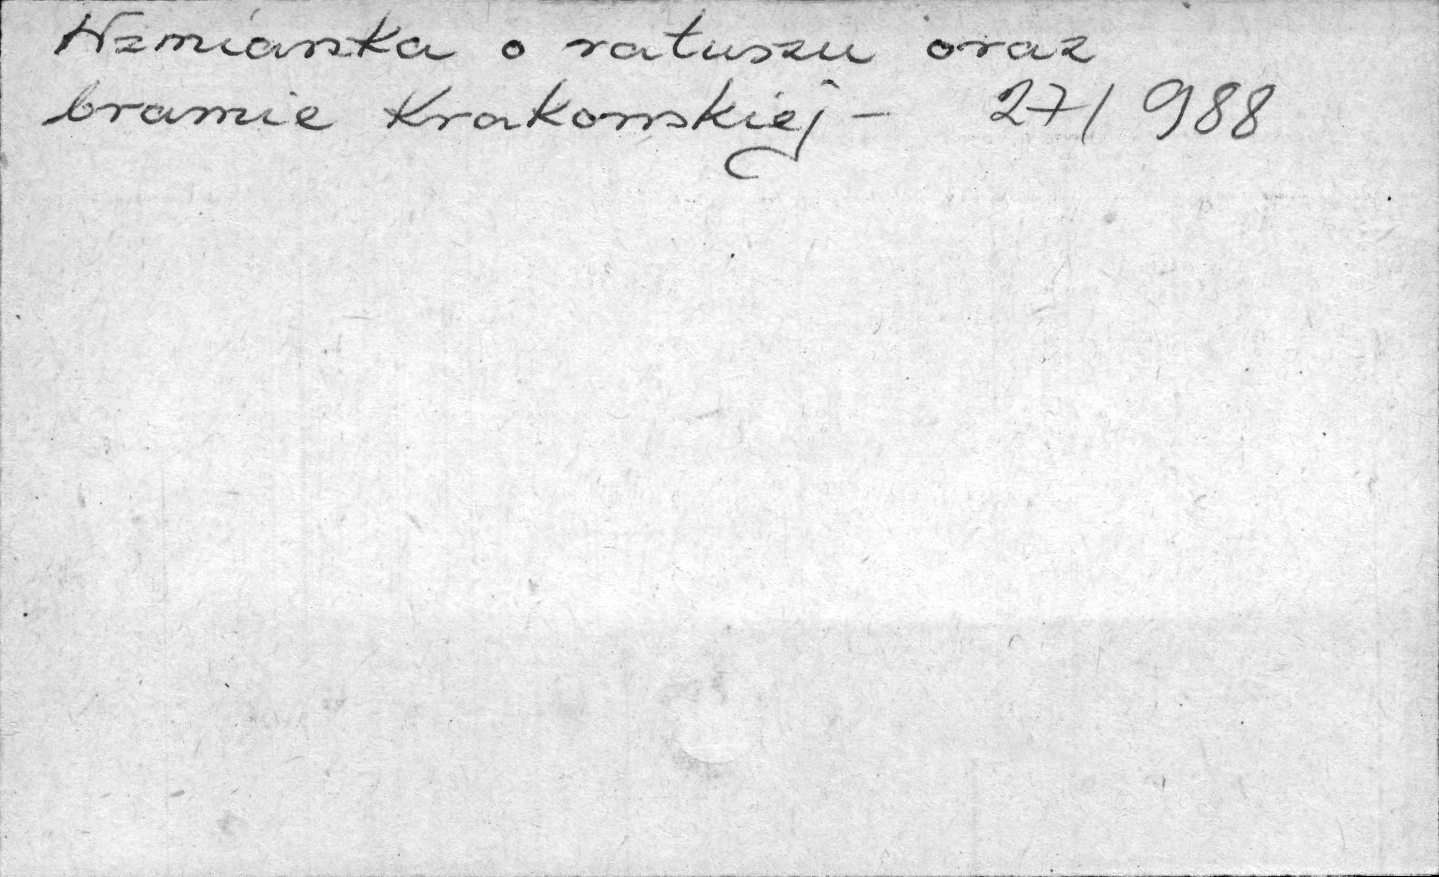 Wzmianka o ratuszu oraz
bramie Krakowskiej - 27/988